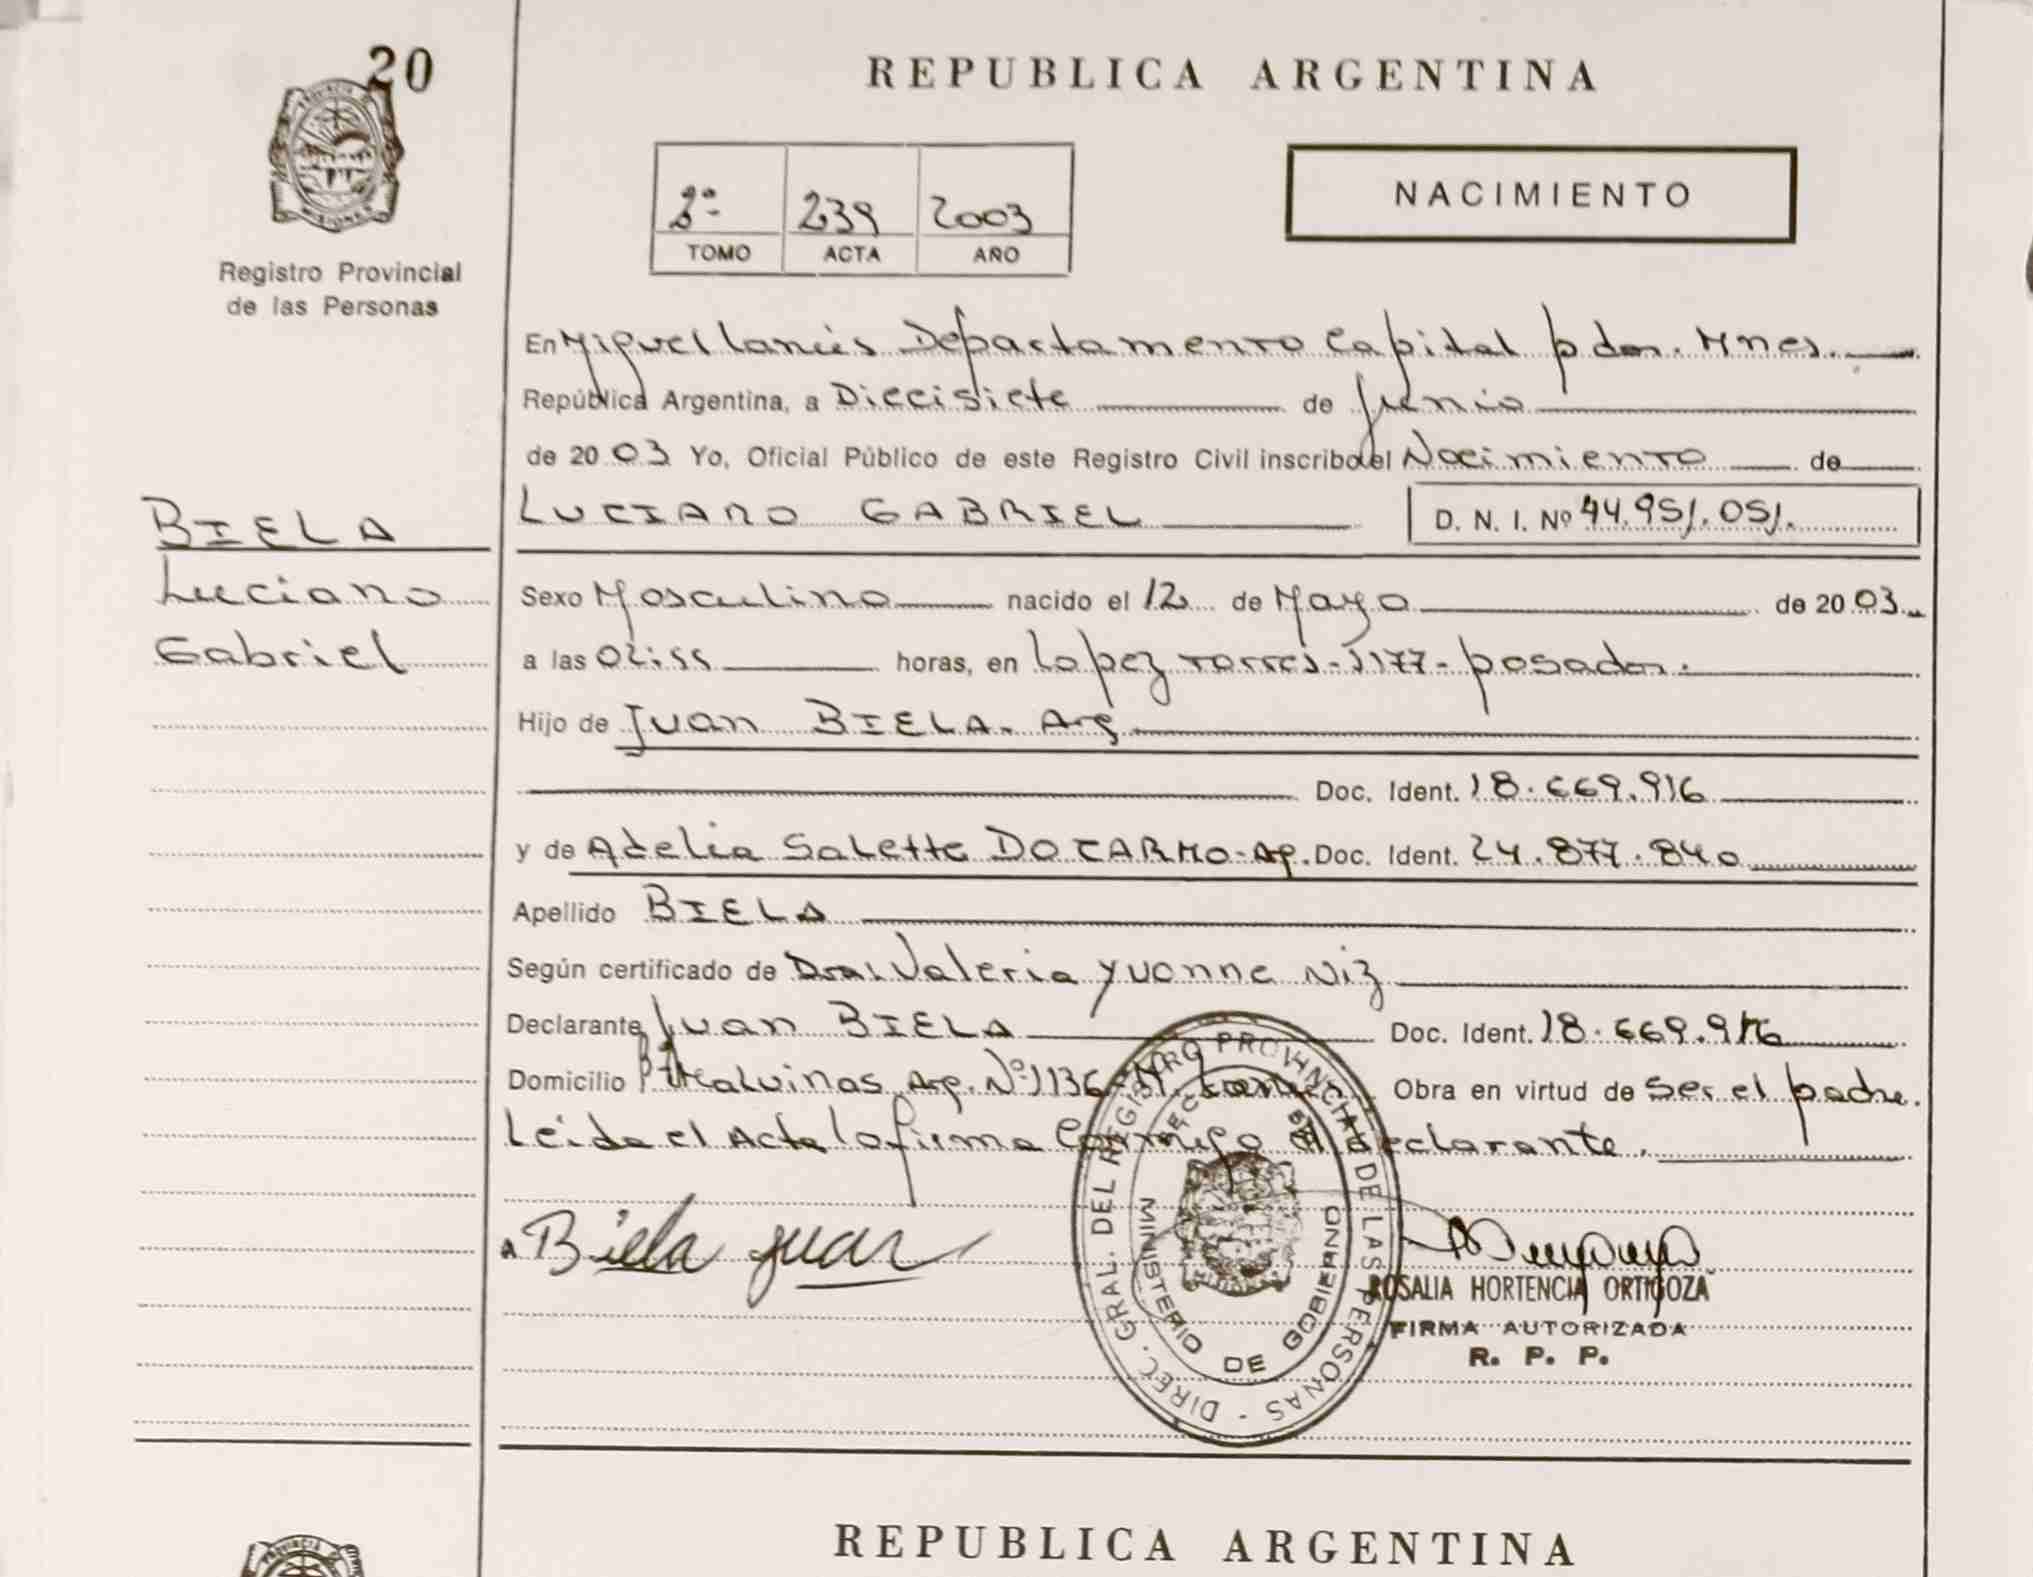 20
PROVINCIA DE
MISIONES
Registro Provincial
de las Personas
REPUBLICA ARGENTINA
2º 239 2003
TOMO ACTA AÑO
NACIMIENTO
En Miguel Lanús Departamento Capital pdas. Mnes.
República Argentina, a Diecisiete de Junio
de 2003 Yo, Oficial Público de este Registro Civil inscribo el Nacimiento de
BIELA
Luciano
Gabriel
LUCIANO GABRIEL D. N. I. Nº 44.951.051.
Sexo Masculino nacido el 12 de Mayo de 2003
a las 02:55 horas, en Lopez Torres - 1177 - posadas.
Hijo de Juan BIELA. Arg
Doc. Ident. 18.669.916
y de Adelia Salette DO CARMO - Arg. Doc. Ident. 24.877.840
Apellido BIELA
Según certificado de Dra. Valeria Yvonne Niz
Declarante Juan BIELA Doc. Ident. 18.669.916
Domicilio Malvinas Arg. Nº 1136 Obra en virtud de Ser el padre.
Leida el Acta la firma Conmigo el declarante.
Biela Juan
DIREC. GRAL. DEL REGISTRO PROVINCIAL DE LAS PERSONAS -
MINISTERIO DE GOBIERNO
ROSALIA HORTENCIA ORTIGOZA
FIRMA AUTORIZADA
R. P. P.
REPUBLICA ARGENTINA
PROVINCIA DE